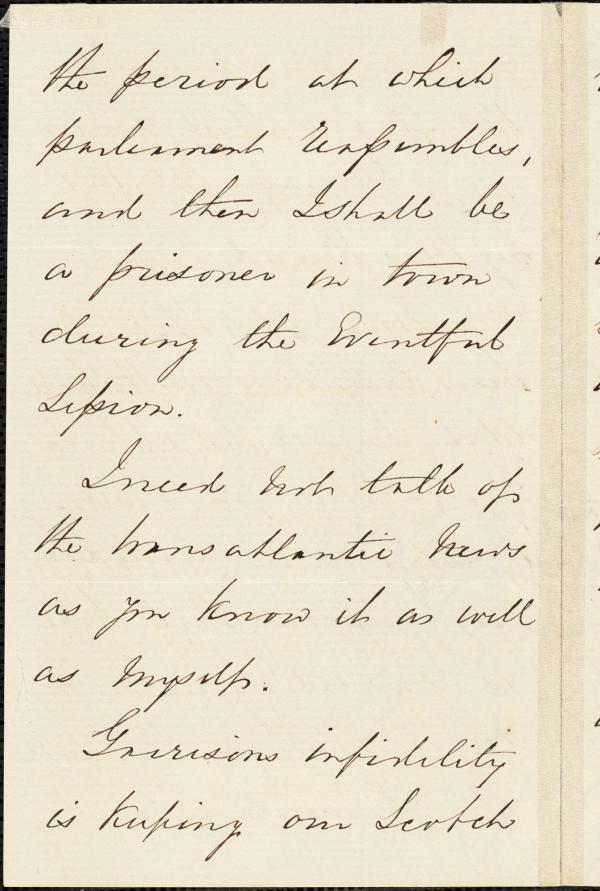 the period at which
parliament reassembles,
and then I shall be
a prisoner in town
during the Eventful
Session.
I need not talk of
the transatlantic News
as you know it as well
as Myself.
Garrisons infidelity
is keeping our Scotch